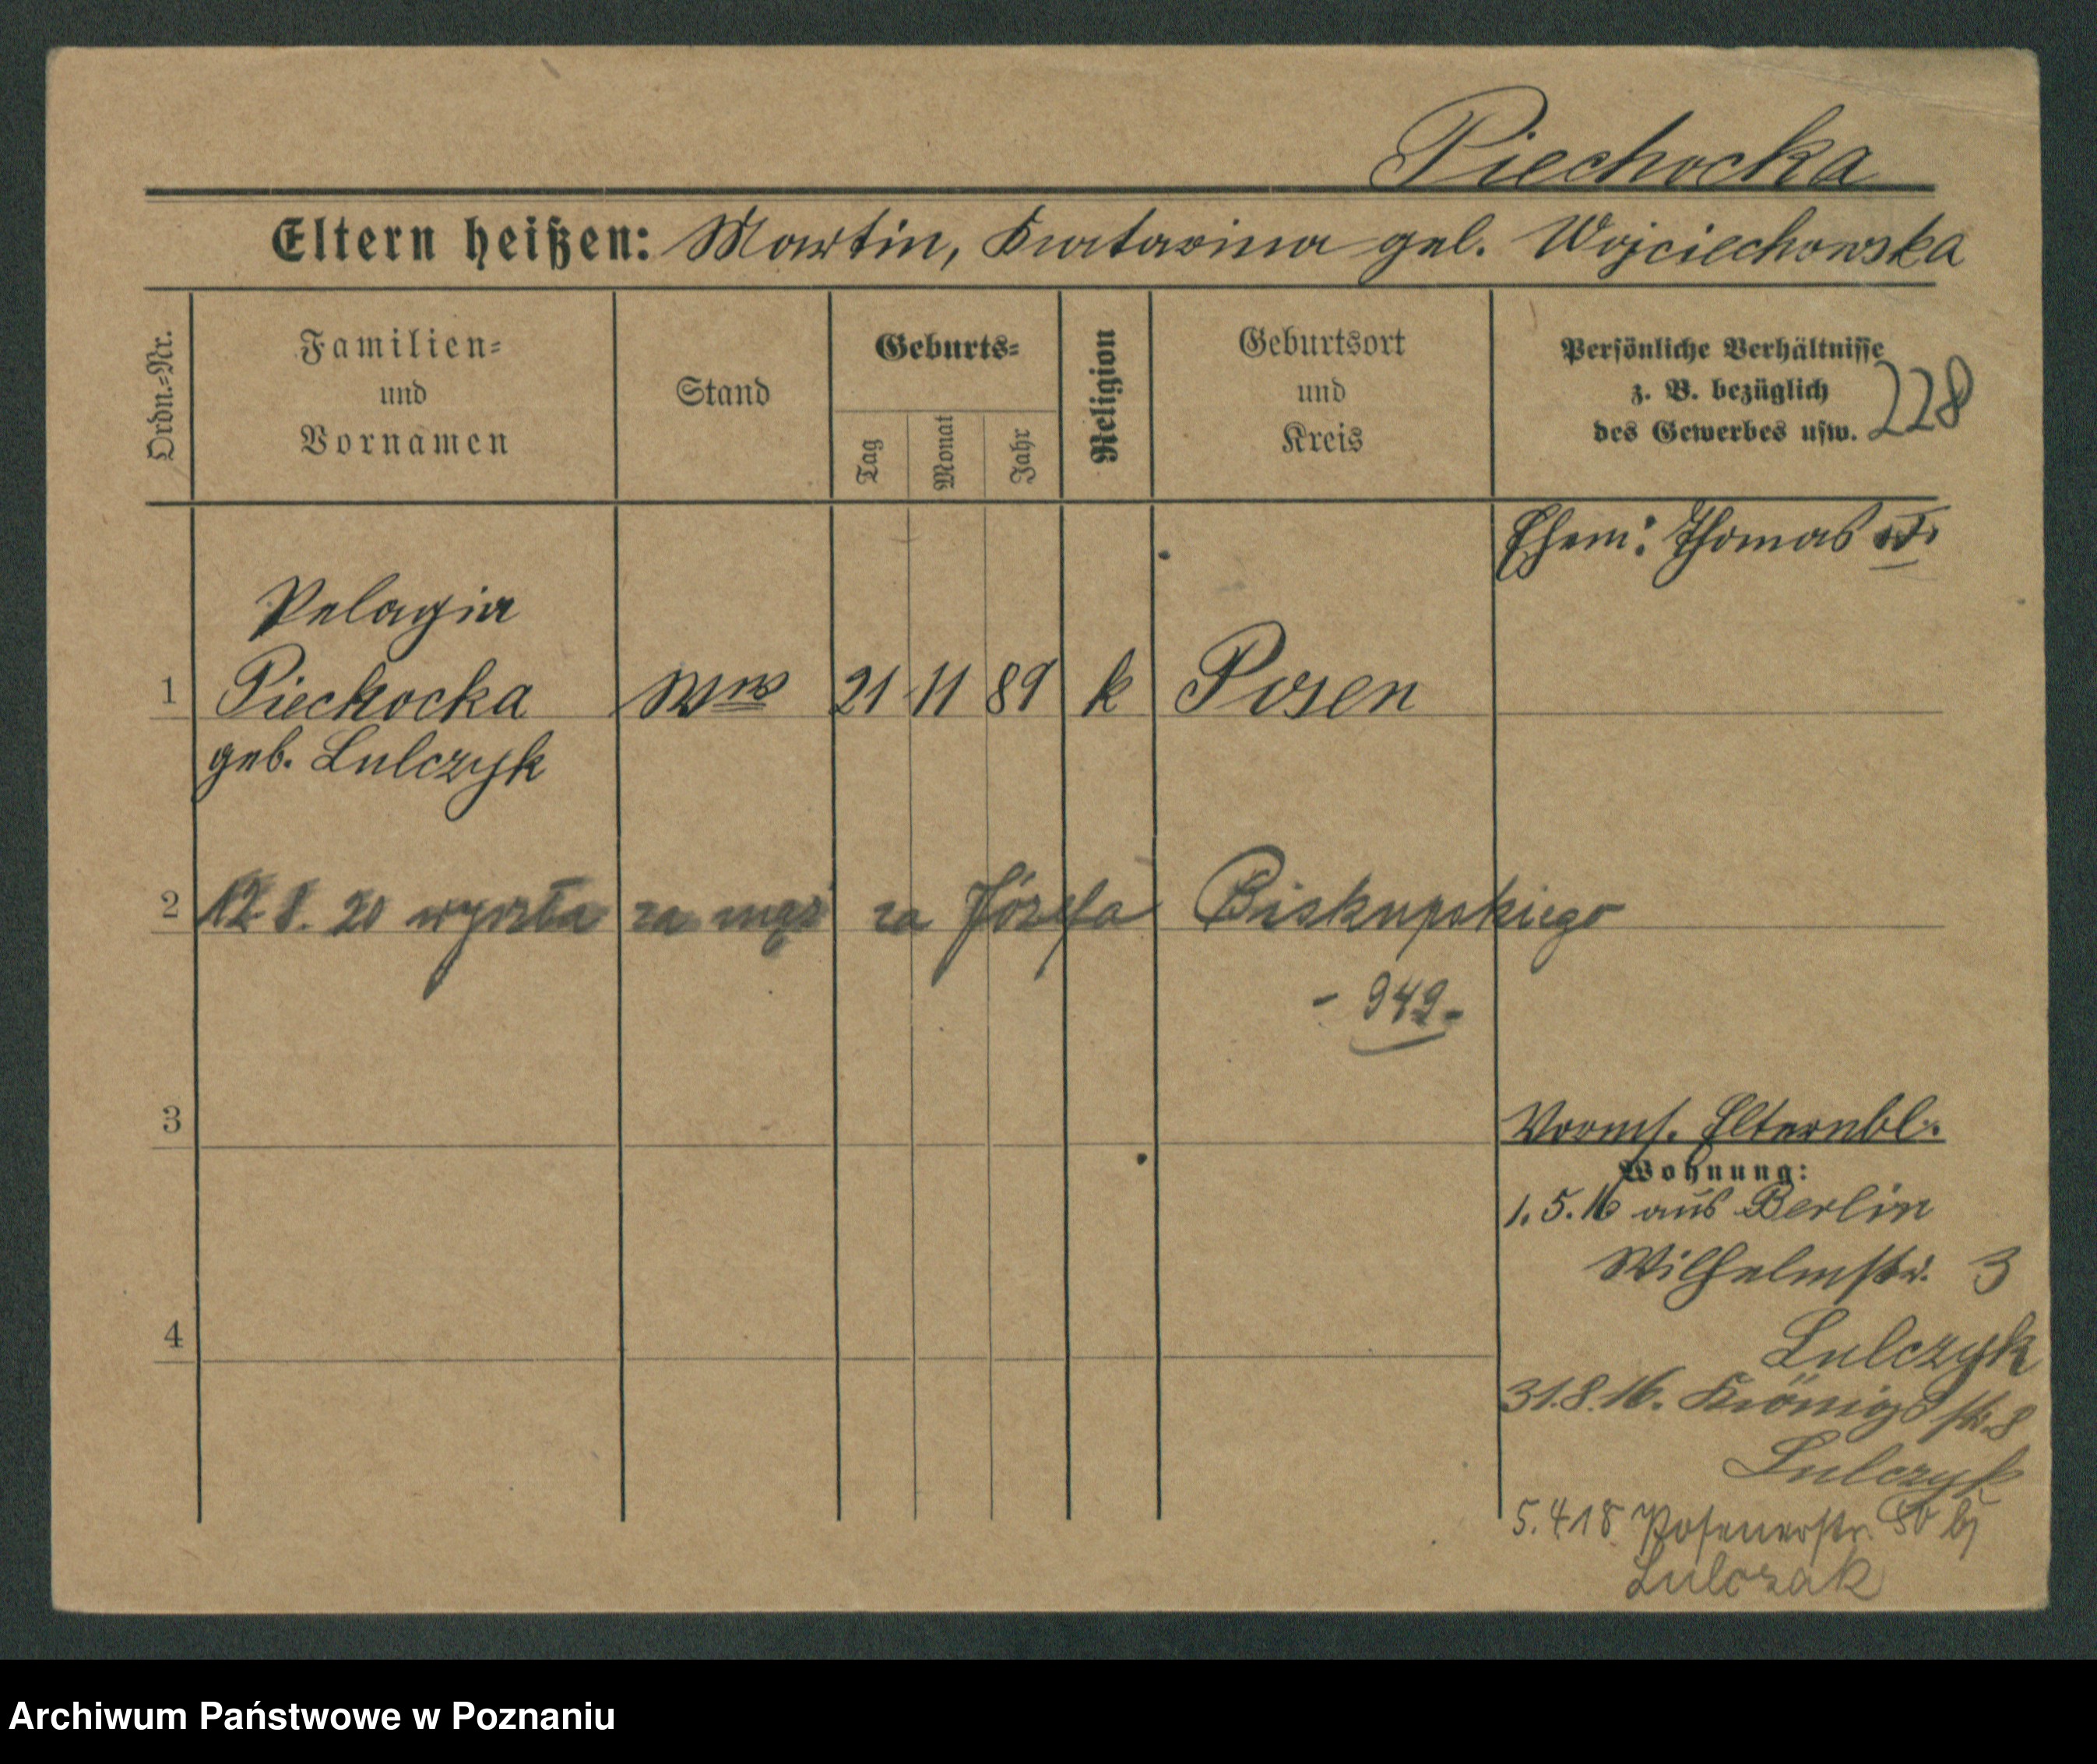 Piechocka
Eltern heißen: Martin, Katarina geb. Wojciechowska
Ordn.=Nr.
Familien=
und
Vornamen
Stand
Geburts=
Tag
Monat
Jahr
Religion
Geburtsort
und
Kreis
Persönliche Verhältnisse
z. B. bezüglich
des Gewerbes usw.
228
Ehem: Thomas
Pelagia
1 Piechocka Www 21 11 89 k Posen
geb. Lulczyk
2 12 8. 20 wyszła za mąż za Józefa Biskupskiego
- 949 -
3
Elternbl.
Wohnung:
1.5.16 aus Berlin
Wilhelmstr. 3
Lulczyk
4
31.8.16. Königstr. 8
Lulczyk
5.4.18 Posenerstr. 50 bj
Lulczak
Archiwum Państwowe w Poznaniu